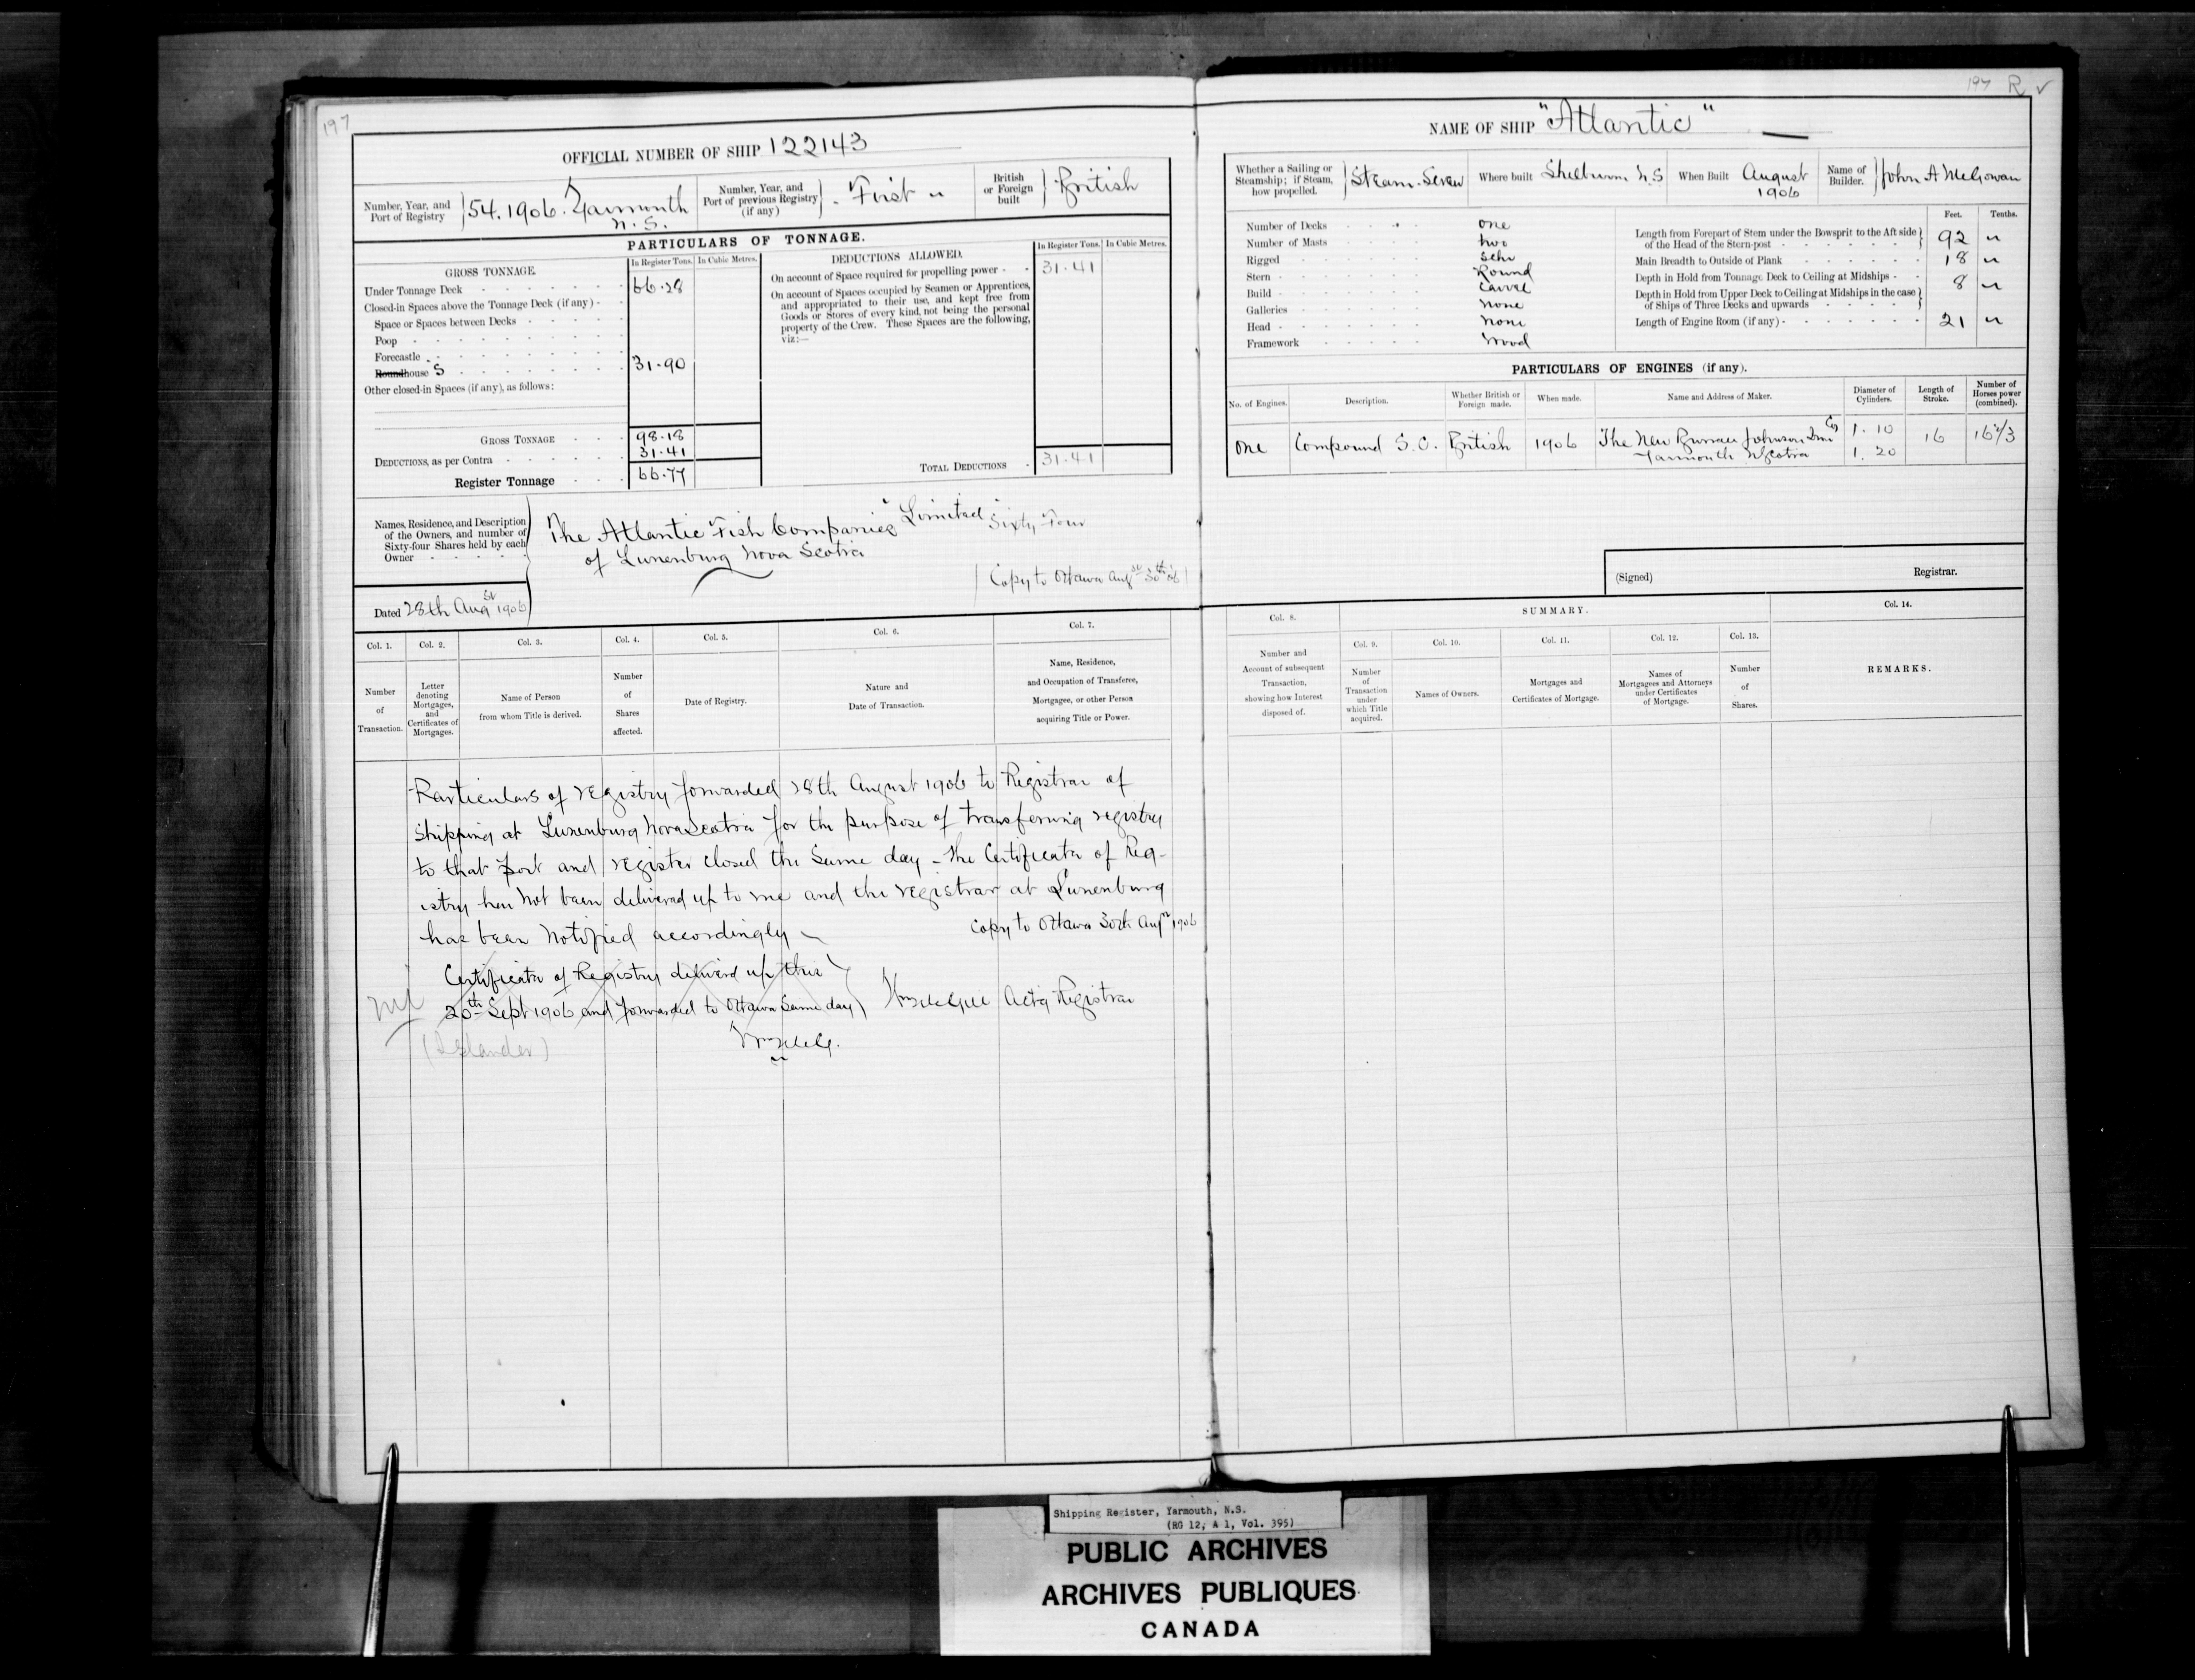 197
OFFICIAL NUMBER OF SHIP 122143
Number, Year, and Port of Registry } 54. 1906. Yarmouth N.S.
Number, Year, and Port of previous Registry (if any) } First "
British or Foreign built } British
PARTICULARS OF TONNAGE.
GROSS TONNAGE.
In Register Tons.
In Cubic Metres.
Under Tonnage Deck 66.28
Closed-in Spaces above the Tonnage Deck (if any)
Space or Spaces between Decks
Poop
Forecastle
Roundhouse S 31.90
Other closed-in Spaces (if any), as follows:
GROSS TONNAGE 98.18
DEDUCTIONS, as per Contra 31.41
Register Tonnage 66.77
DEDUCTIONS ALLOWED.
In Register Tons.
In Cubic Metres.
On account of Space required for propelling power 31.41
On account of Spaces occupied by Seamen or Apprentices,
and appropriated to their use, and kept free from
Goods or Stores of every kind, not being the personal
property of the Crew. These Spaces are the following,
viz:—
TOTAL DEDUCTIONS 31.41
Names, Residence, and Description
of the Owners, and number of
Sixty-four Shares held by each
Owner
The Atlantic Fish Companies Limited Sixty Four
of Lunenburg Nova Scotia
Copy to Ottawa Augst 30th 06
Dated 28th Augst 1906
Col. 1.
Number of Transaction.
Col. 2.
Letter denoting Mortgages, and Certificates of Mortgages.
Col. 3.
Name of Person from whom Title is derived.
Col. 4.
Number of Shares affected.
Col. 5.
Date of Registry.
Col. 6.
Nature and Date of Transaction.
Col. 7.
Name, Residence, and Occupation of Transferee, Mortgagee, or other Person acquiring Title or Power.
Particulars of registry forwarded 28th August 1906 to Registrar of
Shipping at Lunenburg Nova Scotia for the purpose of transferring registry
to that port and register closed the same day - The Certificate of Reg-
istry has not been delivered up to me and the registrar at Lunenburg
has been notified accordingly
Copy to Ottawa 30th Augst 1906
Certificate of Registry delivered up this
20th Sept 1906 and forwarded to Ottawa same day
Actg Registrar
(Islander)
197 R
NAME OF SHIP "Atlantic"
Whether a Sailing or Steamship; if Steam, how propelled. } Steam. Screw
Where built Shelburne N.S
When Built August 1906
Name of Builder. } John A McGowan
Number of Decks one
Number of Masts two
Rigged Schr
Stern Round
Build Carvel
Galleries none
Head none
Framework Wood
Feet.
Tenths.
Length from Forepart of Stem under the Bowsprit to the Aft side of the Head of the Stern-post 92 "
Main Breadth to Outside of Plank 18 "
Depth in Hold from Tonnage Deck to Ceiling at Midships 8 "
Depth in Hold from Upper Deck to Ceiling at Midships in the case of Ships of Three Decks and upwards
Length of Engine Room (if any) 21 "
PARTICULARS OF ENGINES (if any).
No. of Engines.
Description.
Whether British or Foreign made.
When made.
Name and Address of Maker.
Diameter of Cylinders.
Length of Stroke.
Number of Horses power (combined).
One
Compound S.C.
British
1906
The New Burrell Johnson Iron Co
Yarmouth N Scotia
1. 10
1. 20
16
16 2/3
(Signed) Registrar.
Col. 8.
Number and Account of subsequent Transaction, showing how Interest disposed of.
SUMMARY.
Col. 9.
Number of Transaction under which Title acquired.
Col. 10.
Names of Owners.
Col. 11.
Mortgages and Certificates of Mortgage.
Col. 12.
Names of Mortgagees and Attorneys under Certificates of Mortgage.
Col. 13.
Number of Shares.
Col. 14.
REMARKS.
Shipping Register, Yarmouth, N.S.
(RG 12, A 1, Vol. 395)
PUBLIC ARCHIVES
ARCHIVES PUBLIQUES
CANADA